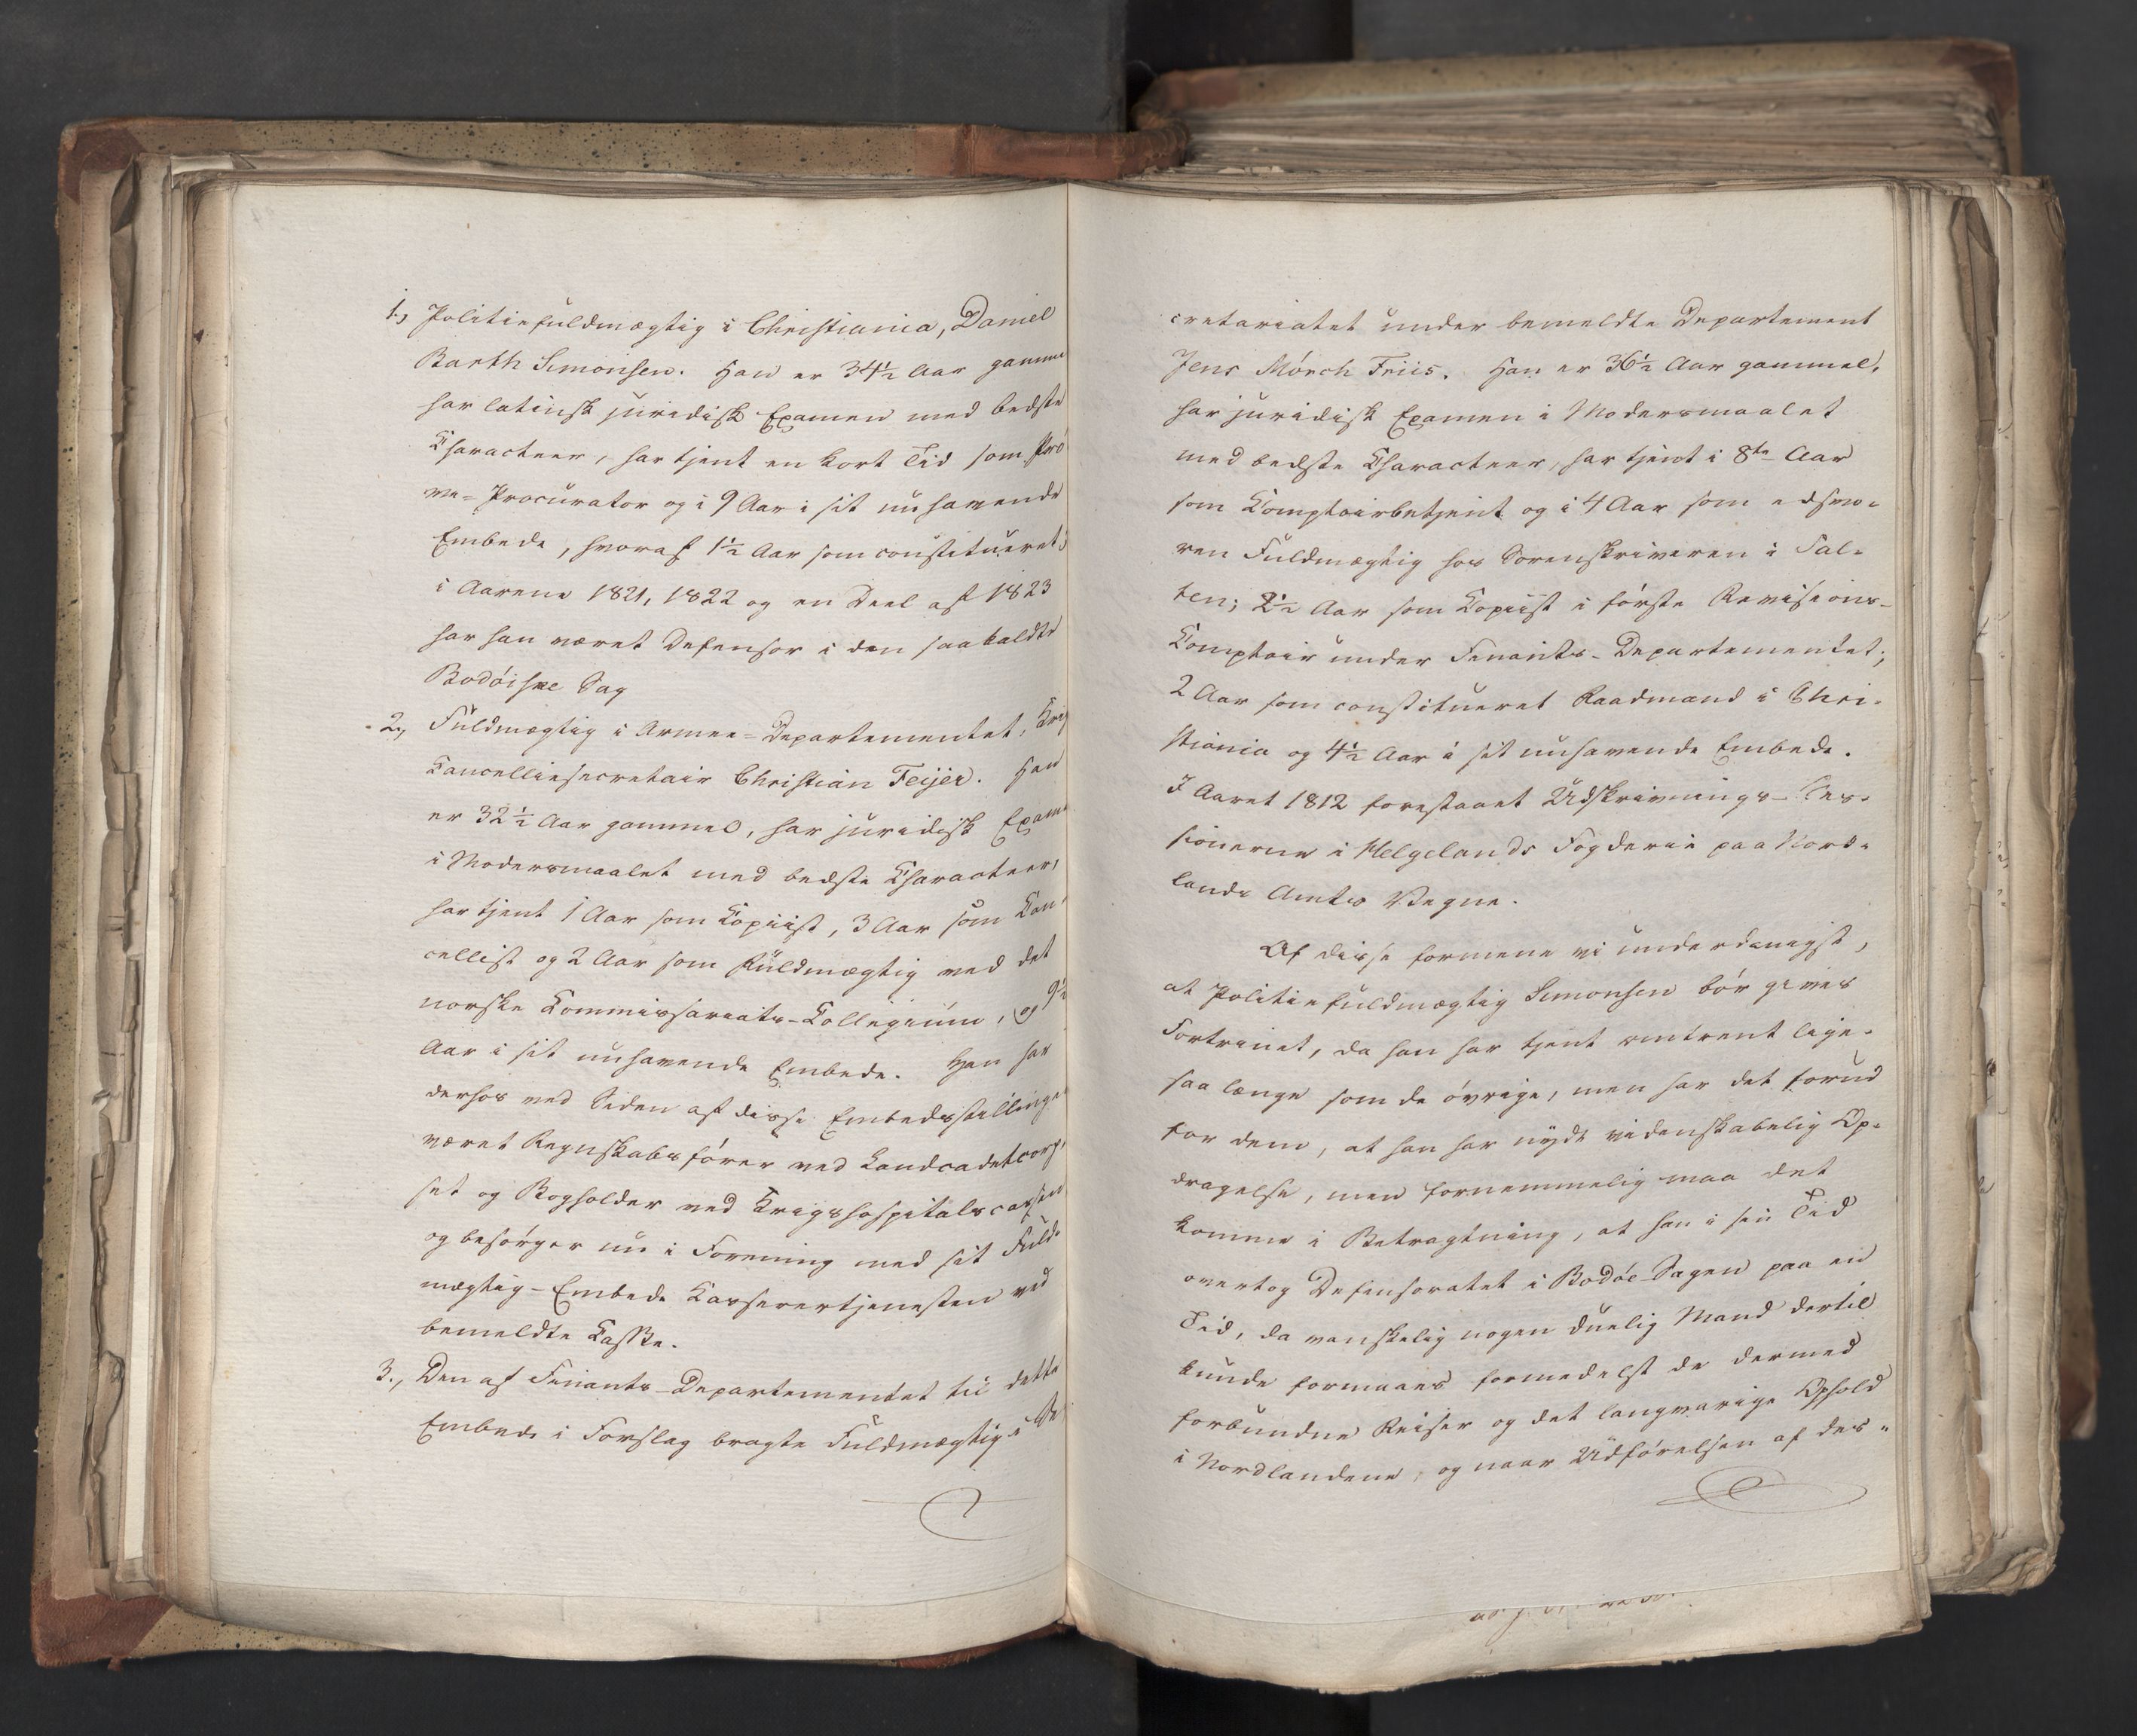 1., Politiefuldmægtig i Christiania, Daniel
Barth Simonsen. Han er 34½ Aar gamme
har latinsk juridisk Examen med bedste
Characteer, har tjent en kort Tid som Prø
ve-Procurator og i 9 Aar i sit nuhavende
Embede, hvoraf 1½ Aar som constitueret;
i Aarene 1821, 1822 og en Deel af 1823
har han været Defensor i den saakaldte
Bodøiske Sag
2., Fuldmægtig i Armee-Departementet, Krigs
Cancelliesecretair Christian Feijer. Han
er 32½ Aar gammel, har juridisk Exame
i Modersmaalet med bedste Characteer,
har tjent 1 Aar som Copiist, 3 Aar som Can
cellist og 2 Aar som Fuldmægtig ved det
norske Commissariats-Collegium, og 9½
Aar i sit nuhavende Embede. Han har
derhos ved Siden af disse Embedsstillinge
været Regnskabsfører ved Landcadetcorp
set og Bogholder ved Krigshospitalscassen
og besørger nu i Forening med sit Fuld-
mægtig-Embede Kassererstjenesten ved
bemeldte Casse.
3., Den af Finants-Departementet til dette
Embede i Forslag bragte Fuldmægtig i Se
cretariatet under bemeldte Departement
Jens Mörch Friis. Han er 36½ Aar gammel,
har juridisk Examen i Modersmaalet
med bedste Characteer, har tjent i 8te Aar
som Comptoirbetjent og i 4 Aar som edsvo-
ren Fuldmægtig hos Sorenskriveren i Sal-
ten; 2½ Aar som Copiist i første Revisions-
Comptoir under Finants-Departementet;
2 Aar som constitueret Raadmand i Chri-
stiania og 4½ Aar i sit nuhavende Embede.
I Aaret 1812 forestaaet Udskrivnings-Ses-
sionerne i Helgelands Fogderie paa Nord-
lands Amts Vegne.
Af disse formene vi underdanigst,
at Politiefuldmægtig Simonsen bør gives
Fortrinet, da han har tjent omtrent lige-
saa længe som de øvrige, men har det forud
for dem, at han har nydt videnskabelig Op-
dragelse, men fornemmelig maa det
komme i Betragtning, at han i sin Tid
overtog Defensoratet i Bodøe-Sagen paa en
Tid, da vanskelig nogen duelig Mand dertil
kunde formaaes formedelst de dermed
forbundne Reiser og det langvarige Ophold
i Nordlandene, og naar Udførelsen af des-